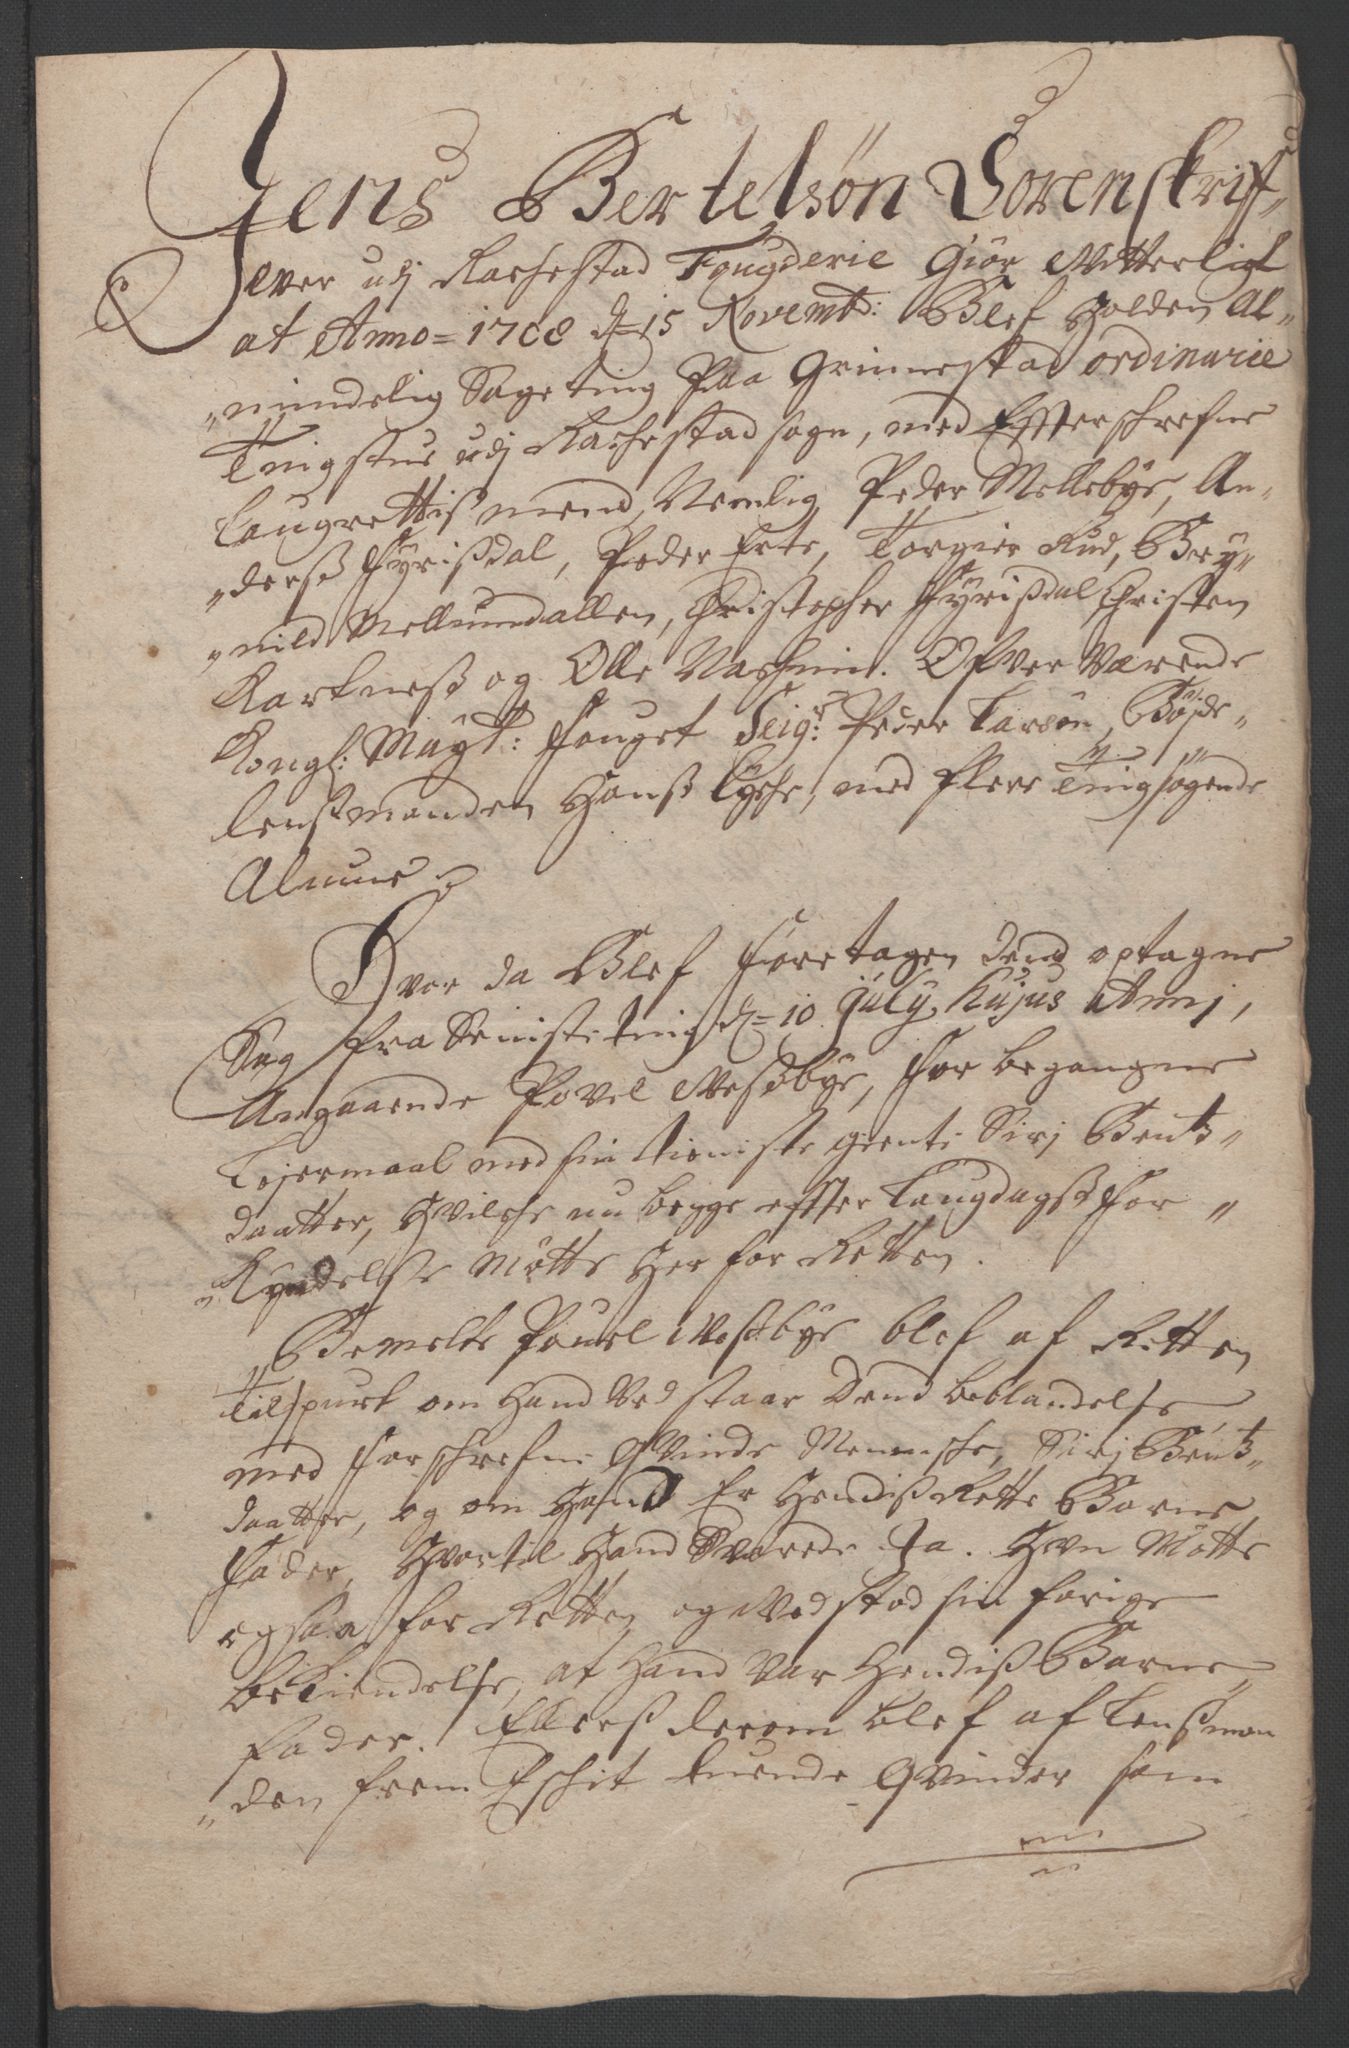 Jens Bertelsøn Sorenskriff„
ver udj Rachestad Fougderie Giør Witterligt
at Anno = 1708 d= 15 Novembr: Blef Holden Al„
„mindelig Sageting Paa Grimestad ordinarie
Tingstue udj Rachestad sogn, med Effterschrefne
Laugrettiss mend, Nemlig Peder Mellebye, An„
„ders Fyrissdal, Peder Erte, Torgier Rud, Bry„
„nild Mellumdallen, Christopher Fyrissdal Christen
Kartness og Olle Naschim. Ofververende
Kongl: Maÿtt: Fouget Seigr: Peder Larsøn, Bøjde„
lenssmanden Hanss Lyche, med flere Tingsøgende
Almue.
Hvor da Blef Foretagen dend optagne
Sag fra Seniste ting d= 10 july Hujus Annj,
Angaaende Povel Westbye, for begangne
Lejermaal med sin tieniste giente Sirj Bentz„
daatter, Hvilche nu begge effter Laugdagss for„
„Kyndelsse Møtte Her for Retten.
Bemelte Pouel Westbye blef af Retten
tilspurt om Hand Vedstaar Dend beblandelse
med forschrefne Qvinde Mennische, Sirj Bentz„
daatter, og om Hand Er Hendiss Rette Barne
Fader, Hvortil Hand Svarede Ja. Hun Møtte
ogsaa for Retten og Vedstod sin forige
bekiendelse, at Hand Var Hendiss Barne„
fader. Ellerss derom blef af Lenssman
„den frem Eschit tuende Qvinder som